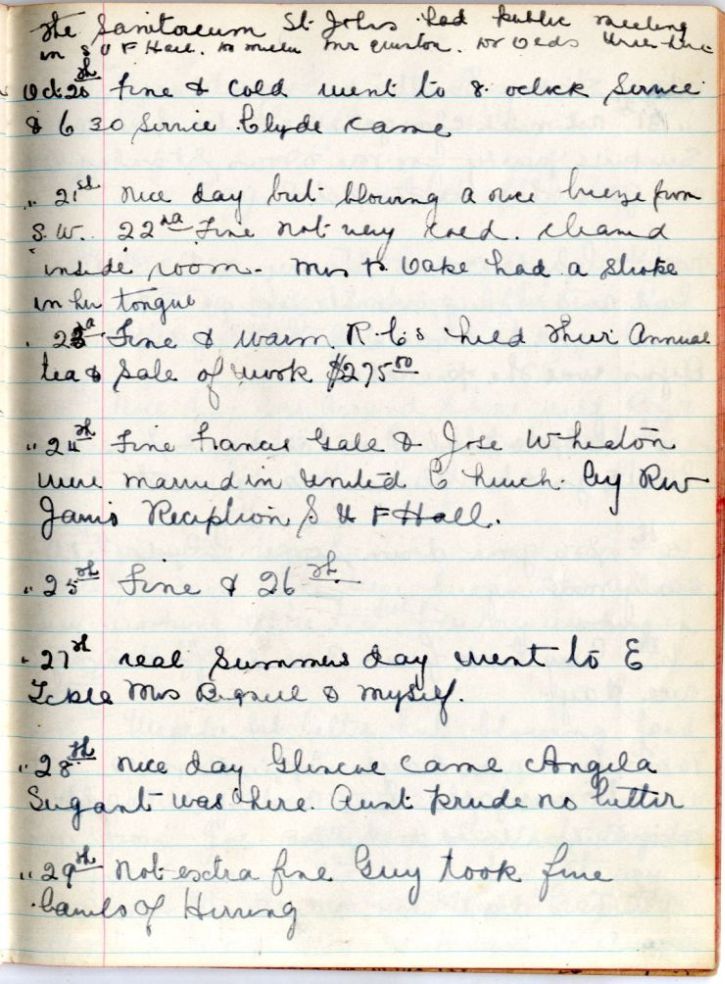 The Sanitoreum St. Johns had public meeting
in S U F Hall. to
Oct 20th Fine & Cold went to 8. oclock Service
& 6 30 Service. Clyde came
" 21st nice day but blowing a nice breeze from
S.W. 22nd Fine not very cold. cleaned
inside room. Mrs Oake had a stroke
in her tongue
23d Fine & warm. R. C's held their Annual
tea & Sale of work $275.00
" 24th Fine Francis Gale & Jose Wheaton
were married in United Church. by Rev
Janis Reception S U F Hall.
" 25th Fine & 26th
" 27th real Summers day went to E
Mrs & myself.
" 28th nice day Glincoe came Angela
Sugant was here. Aunt Prude no better
" 29th Not extra fine Guy took fine
of Herring